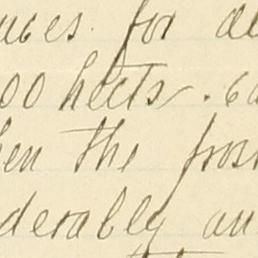 uces. for de
00 hects. 60
hen the fros
derably an